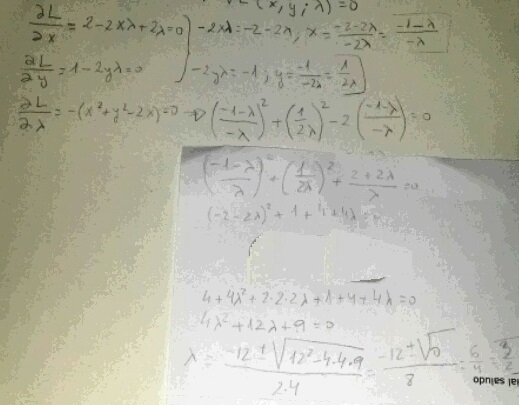 ∇L(x, y; λ) = 0
∂L/∂x = 2 - 2xλ + 2λ = 0 } -2xλ = -2 - 2λ, x = (-2-2λ)/(-2λ) = (-1-λ)/(-λ)
∂L/∂y = 1 - 2yλ = 0 } -2yλ = -1; y = (-1)/(-2λ) = 1/(2λ)
∂L/∂λ = -(x² + y² - 2x) = 0 → ((-1-λ)/(-λ))² + (1/(2λ))² - 2((-1-λ)/(-λ)) = 0
((-1-λ)/λ)² + (1/(2λ))² + (2+2λ)/λ = 0
(-2-2λ)² + 1 + 4 + 4λ =
4 + 4λ² + 2·2·2λ + 1 + 4 + 4λ = 0
4λ² + 12λ + 9 = 0
λ = (-12 ± √(12² - 4·4·9))/(2·4) = (-12 ± √0)/8 = 6/4 = 3/2
ial saludo